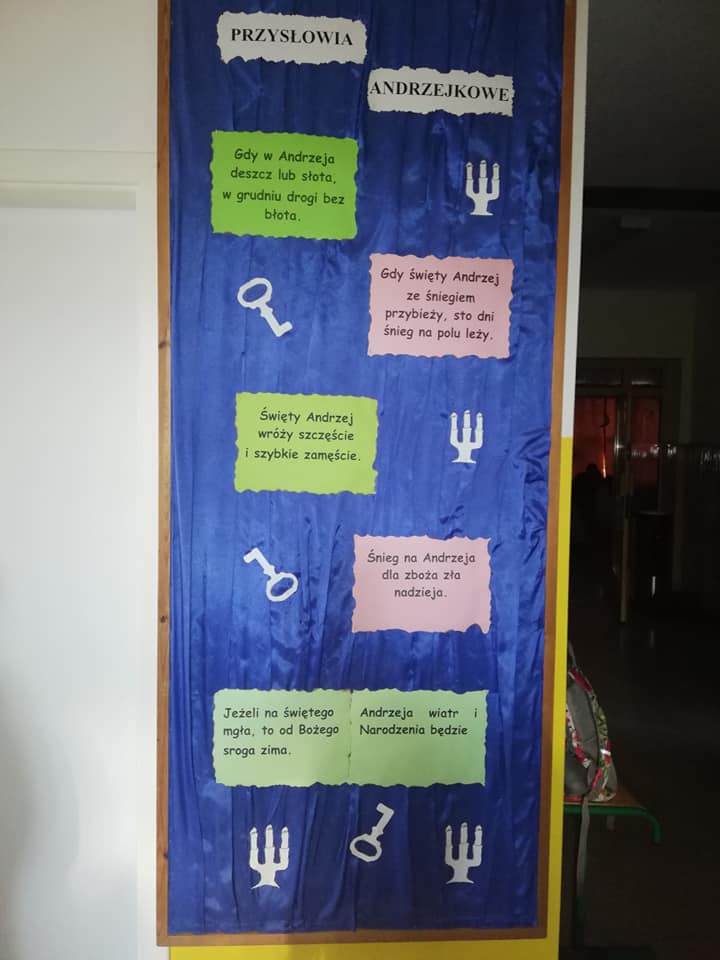 PRZYSŁOWIA
ANDRZEJKOWE
Gdy w Andrzeja
deszcz lub słota,
w grudniu drogi bez
błota.
Gdy święty Andrzej
ze śniegiem
przybieży, sto dni
śnieg na polu leży.
Święty Andrzej
wróży szczęście
i szybkie zamęście.
Śnieg na Andrzeja
dla zboża zła
nadzieja.
Jeżeli na świętego Andrzeja wiatr i
mgła, to od Bożego Narodzenia będzie
sroga zima.